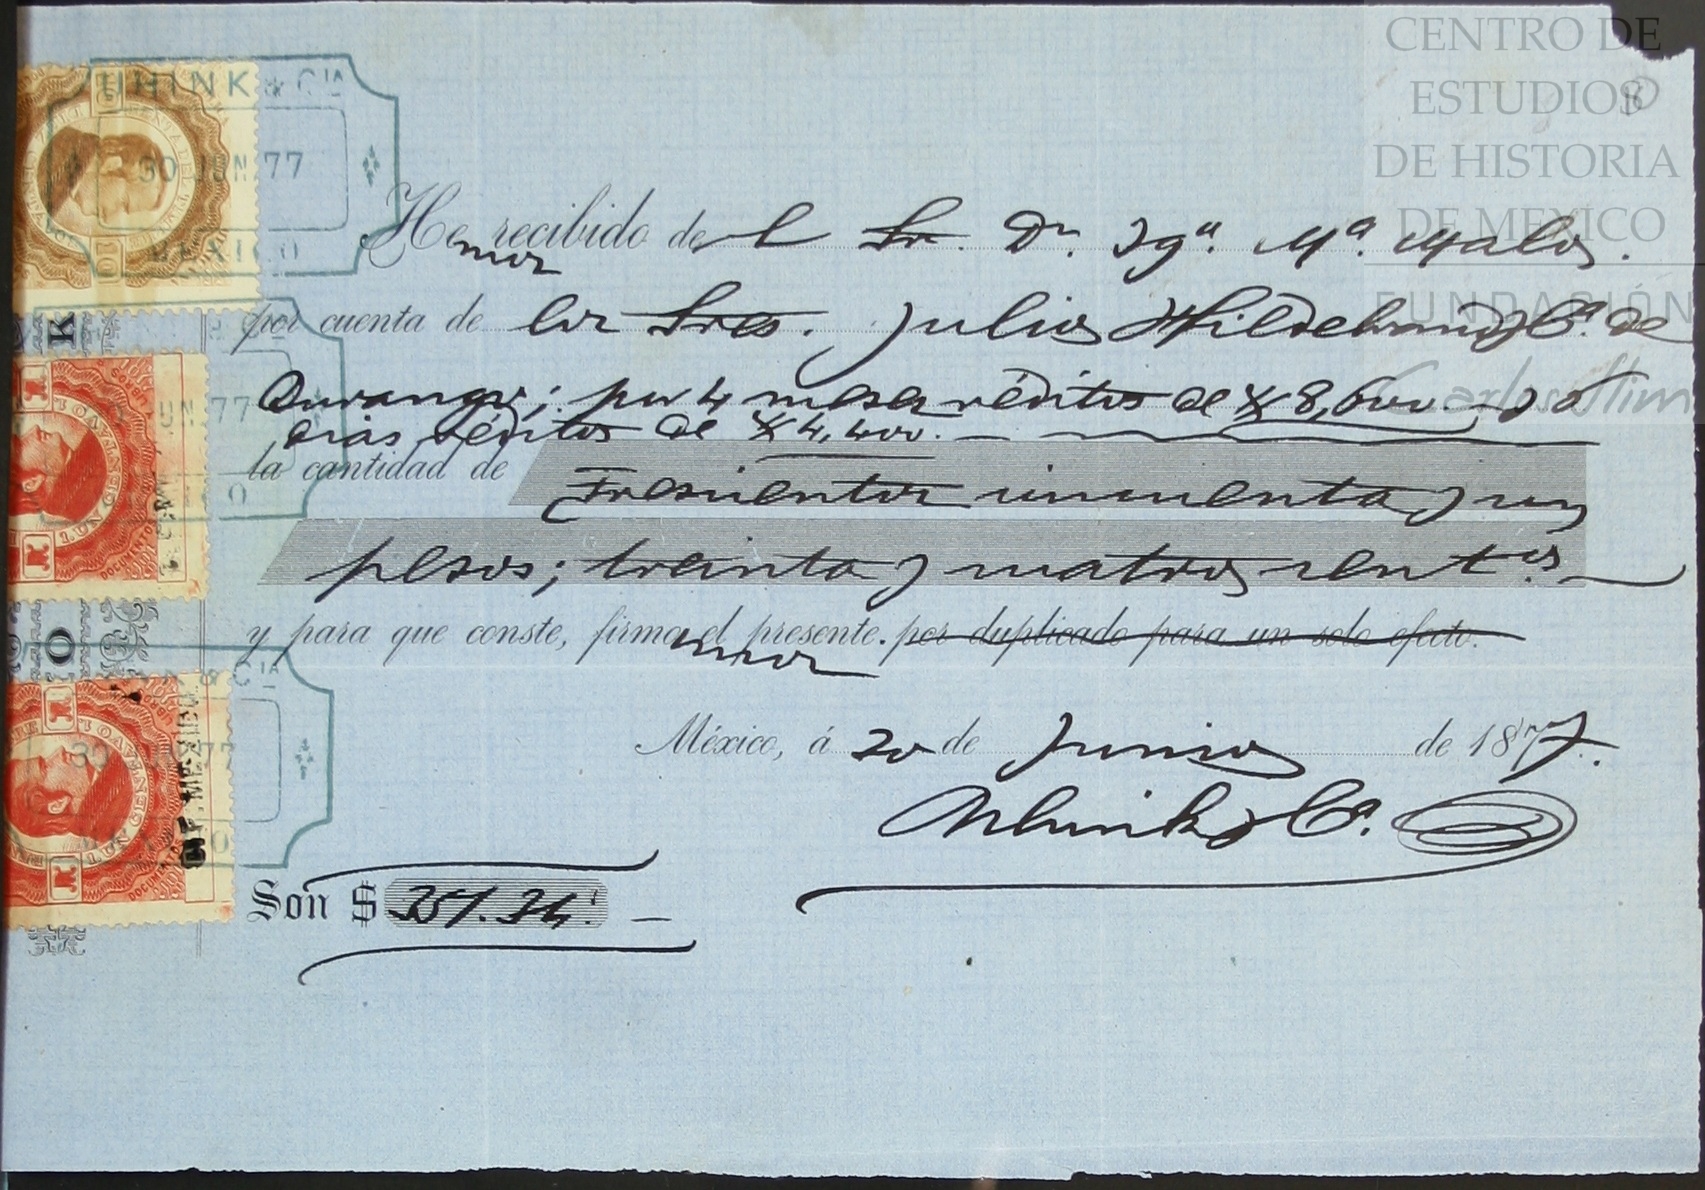 CENTRO DE
ESTUDIOS
DE HISTORIA
DE MÉXICO
FUNDACIÓN
Carlos Slim
UHINK & Cía
30 JUN 77
MEXICO
Hemos recibido del Sr. Dn. Ign. Ma. Malos.
por cuenta de los Sres. Julio Hildebrand y Ca. de
Durango; por 4 meses réditos de $ 8,600. y 6
dias réditos de $ 4,400.
la cantidad de Trescientos cincuenta y un
pesos; treinta y cuatro cent.os
y para que conste, firmamos el presente. por duplicado para un solo efecto.
México, á 20 de Junio de 1877.
Uhink y Ca.
Son $ 351.34.
30 JUN 77
UN CENT
DOCUMENTOS
30 JUN 77
UN CENT
DOCUMENTOS